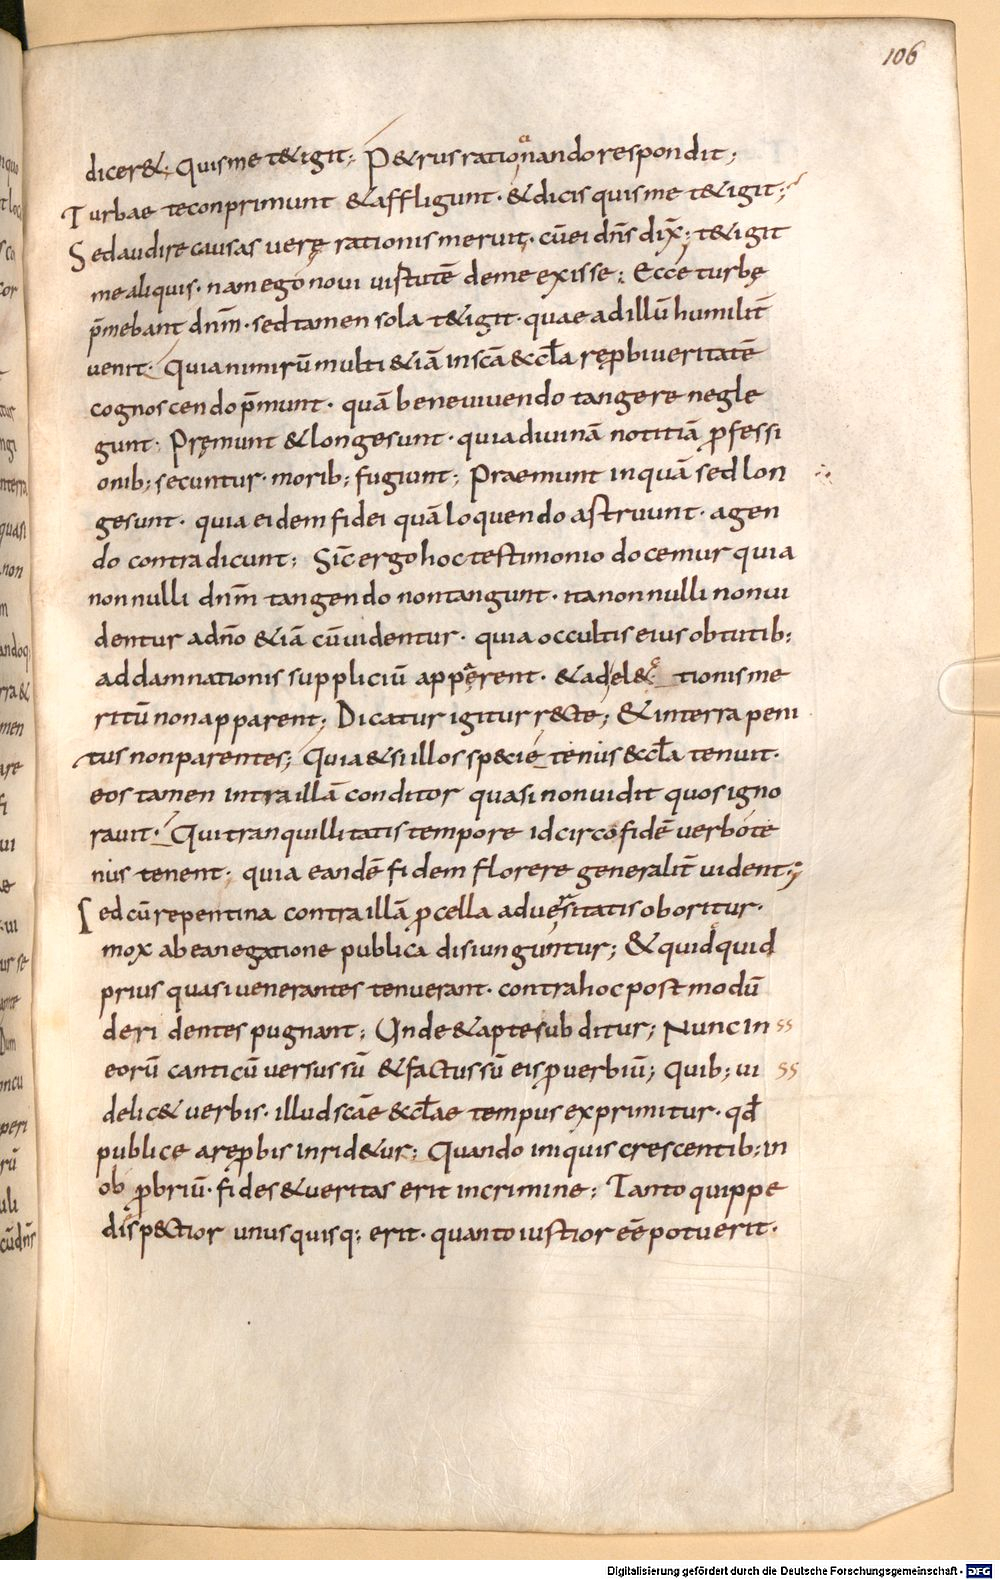 106
dicer&; Quis me t&igit; P&rus ratiocinando respondit;
Turbae te conprimunt & affligunt · & dicis quis me t&igit;
Sed audire causas verę rationis meruit · cū ei dn̄s dix̄; t&igit
me aliquis · nam ego novi virtutē de me exisse; Ecce turbę
p̄mebant dnm̄ · sed tamen sola t&igit · quae ad illū humilit̄
venit · Quia nimirū multi &iā in scā &ccła ręprbi veritatē
cognoscendo p̄munt · quā bene vivendo tangere negle
gunt · Pręmunt & longe sunt · quia divinā notitiā professi
onib; secuntur · morib; fugiunt; Praemunt inquā sed lon
ge sunt · quia eidem fidei quā loquendo astruunt · agen
do contradicunt; Sic̄ ergo hoc testimonio docemur quia
nonnulli dnm̄ tangendo non tangunt · ita nonnulli non vi
dentur a dn̄o &iā cū videntur · quia occultis eius obtutib;
ad damnationis suppliciū apparent · & ad el& tionis me
ritū non apparent; Dicatur igitur r&cte; & in terra peni
tus non parentes; Quia & si illos sp&cie tenus &ccła tenuit ·
eos tamen intra illā conditor quasi non vidit quos igno
ravit · Qui tranquillitatis tempore idcirco fidē verbo te
nus tenent · quia eandē fidem florere generalit̄ vident ·;
Sed cū repentina contra illā procella adversitatis oboritur ·
mox ab ea negatione publica disiunguntur; & quidquid
prius quasi venerantes tenuerant · contra hoc postmodū
deridentes pugnant; Unde & apte subditur; Nunc in ss
eorū canticū versus sū & factus sū eis proverbiū; Quib; vi ss
delic& verbis · illud scāe &ccłae tempus exprimitur · qd̄
publice a ręprbis inrid&ur; Quando iniquis crescentib; in
obprobriū · fides & veritas erit in crimine; Tanto quippe
disp&ctior unusquisq; erit · quanto iustior eē potuerit ·
Digitalisierung gefördert durch die Deutsche Forschungsgemeinschaft - DFG